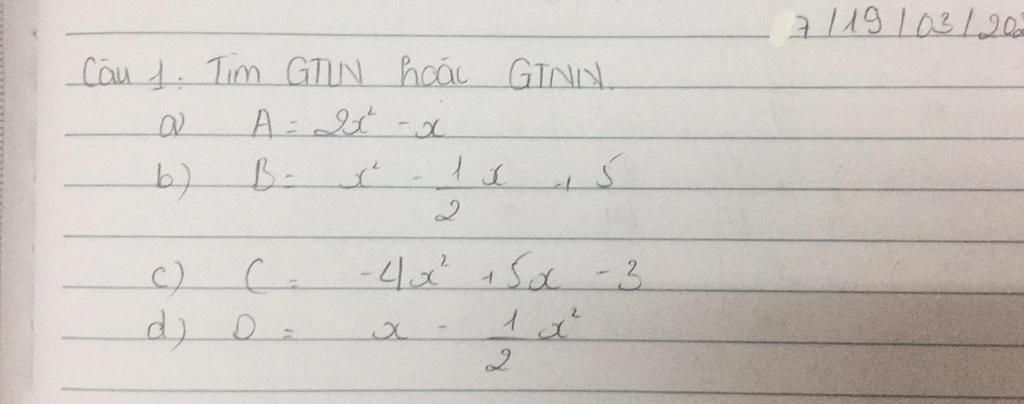 7/19/03/202
Câu 1: Tìm GTLN hoặc GTNN.
a) A = 2x² - x
b) B = x² - 1/2 x + 5
c) C = -4x² + 5x - 3
d) D = x - 1/2 x²